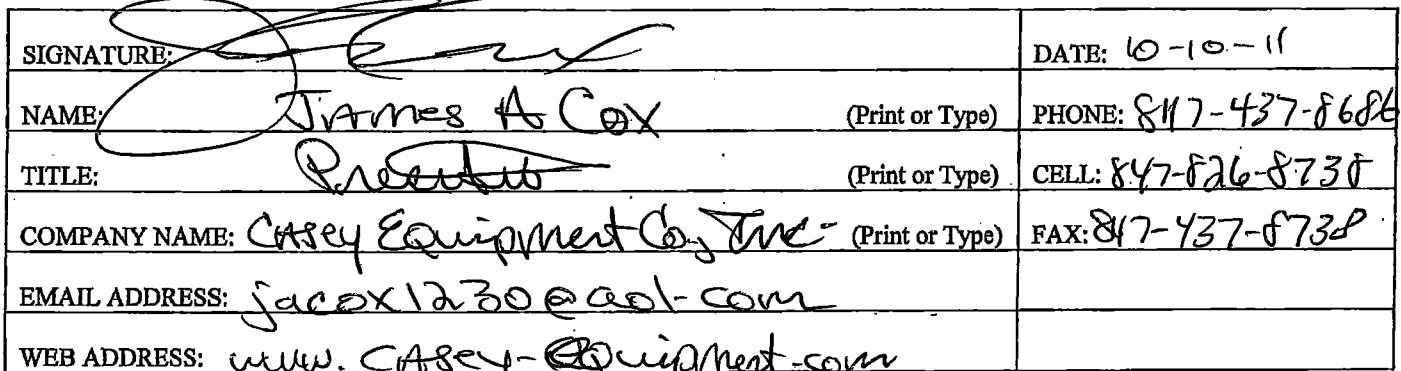 SIGNATURE: DATE: 10-10-11
NAME: JAmes A Cox (Print or Type) PHONE: 847-437-8686
TITLE: President (Print or Type) CELL: 847-826-8738
COMPANY NAME: CASey Equipment Co, Inc- (Print or Type) FAX: 847-437-8738
EMAIL ADDRESS: jacox1230@aol.com
WEB ADDRESS: www.CASey-Equipment.com